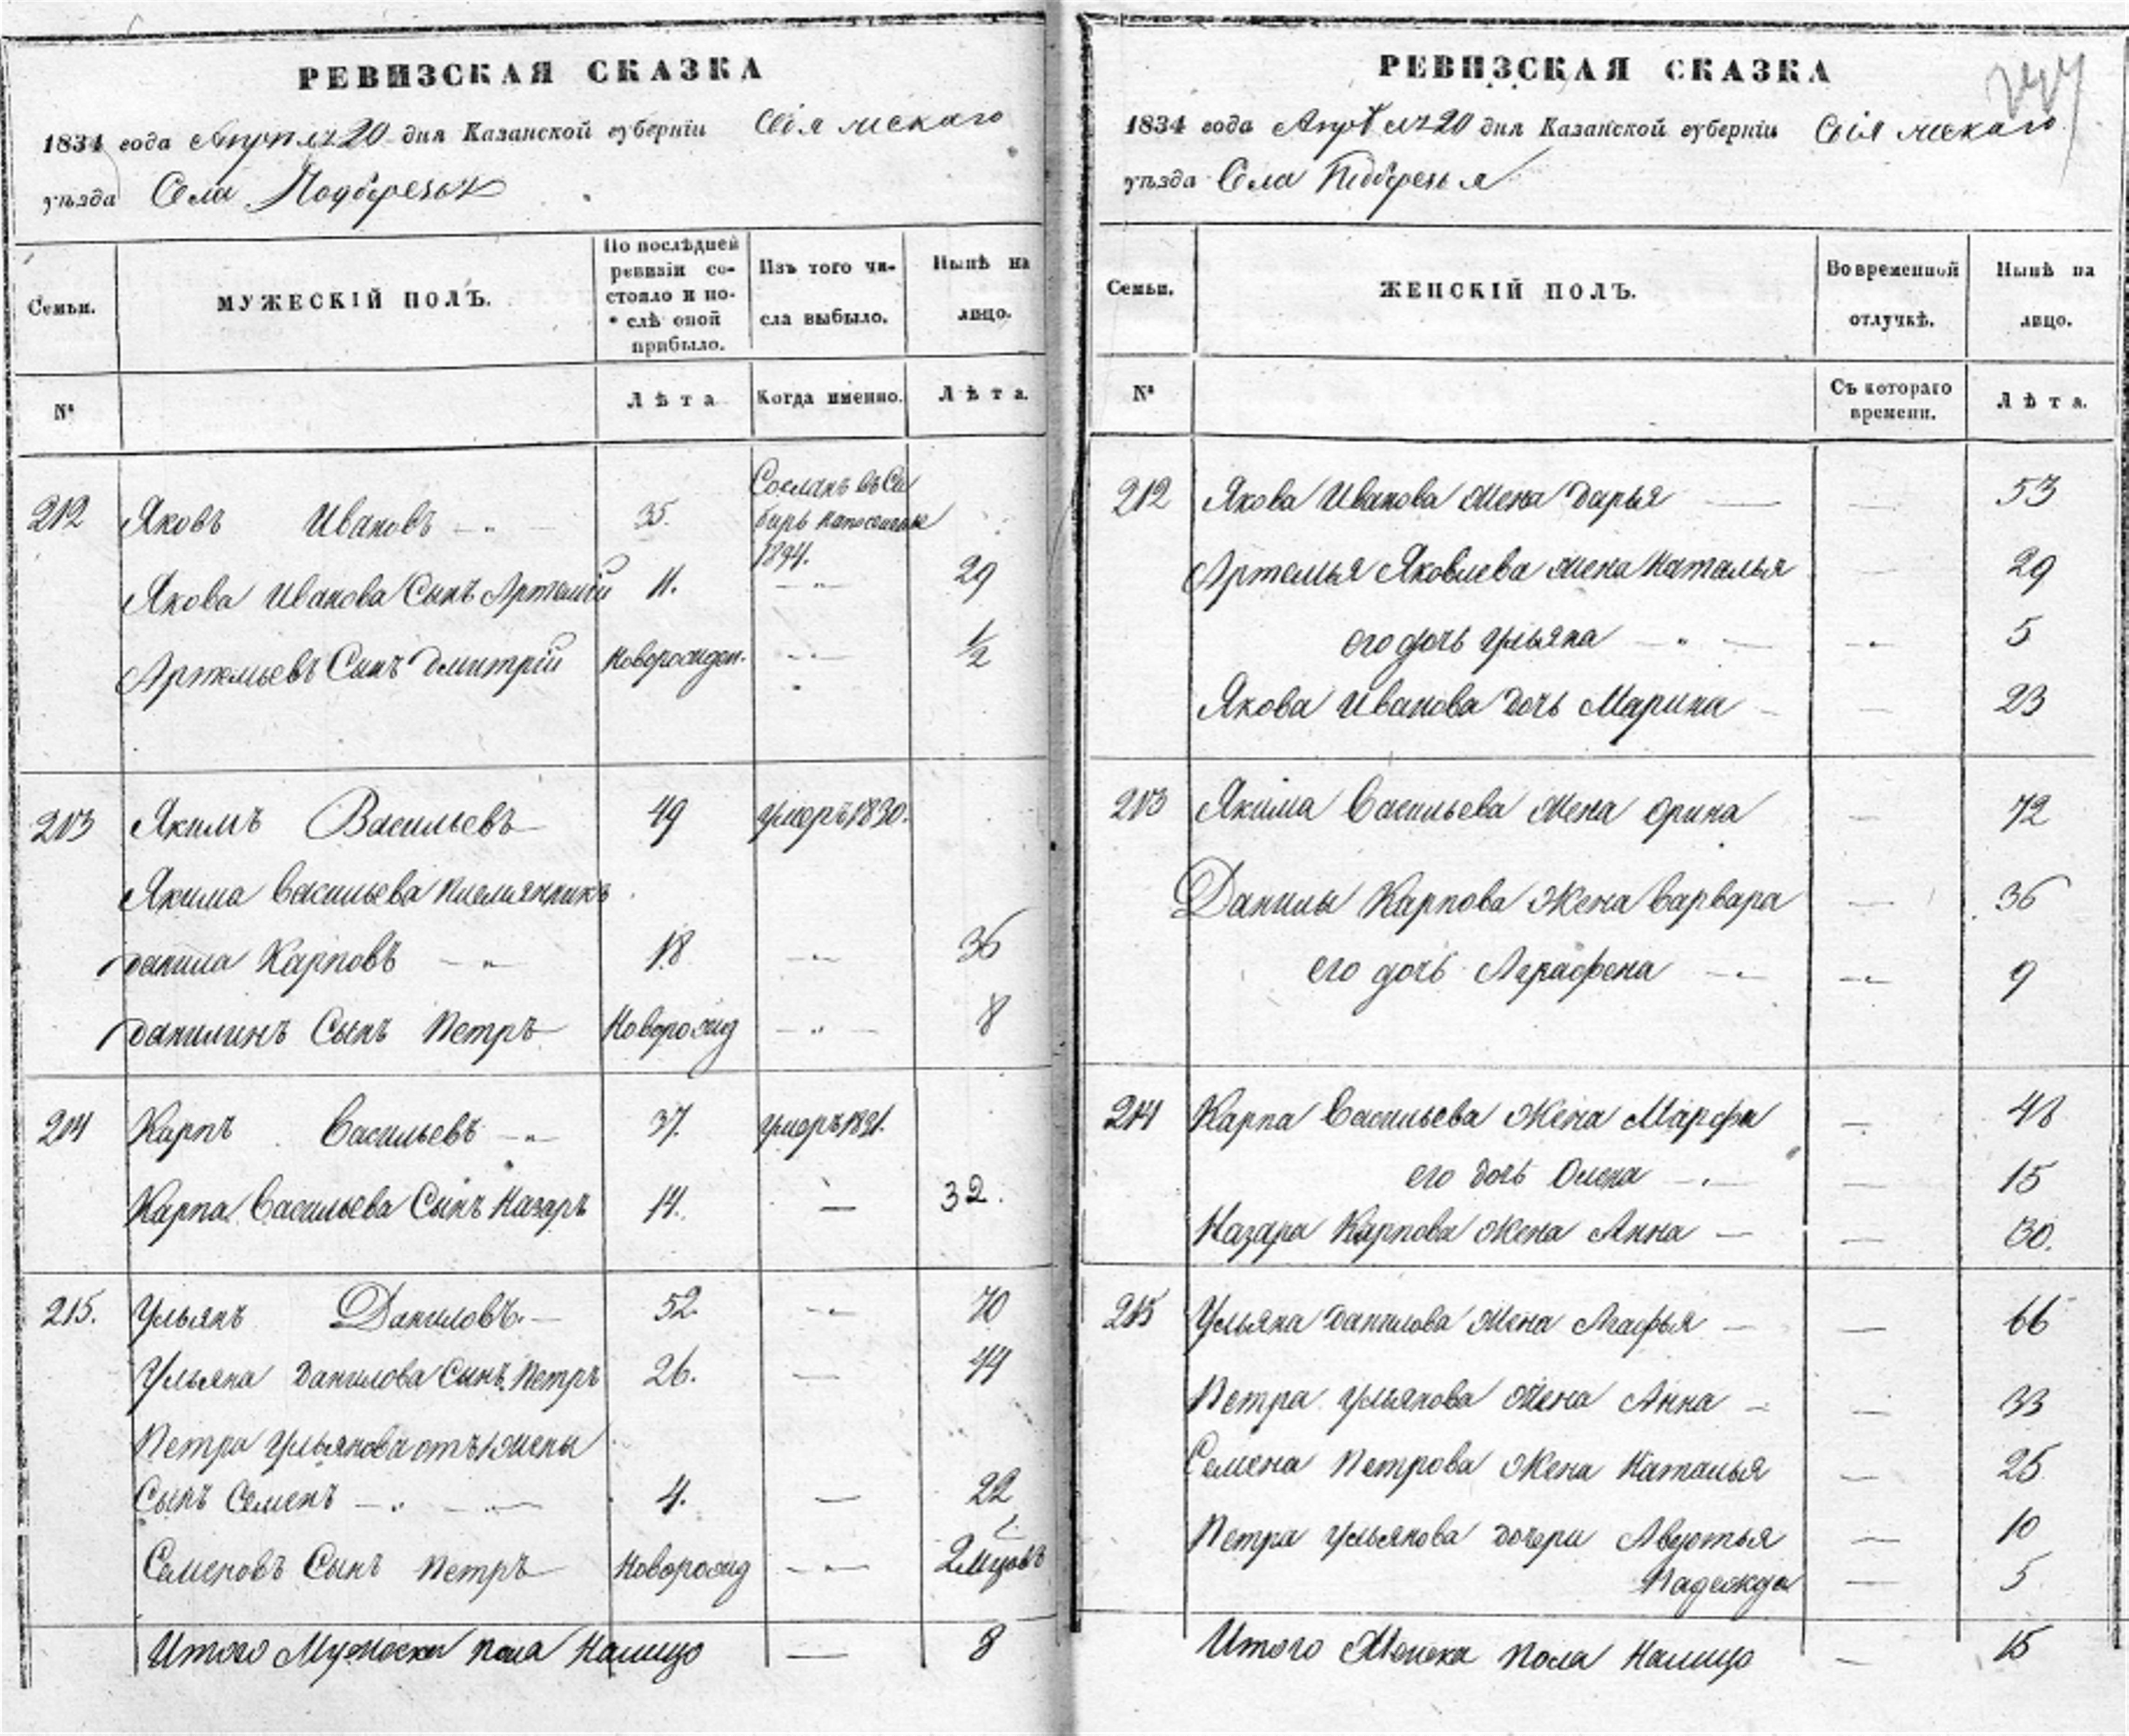 РЕВИЗСКАЯ СКАЗКА
1834 года Апреля 20 дня Казанской губерніи Свіяжскаго
уѣзда Села Подберезья
Семьи.
МУЖЕСКІЙ ПОЛЪ.
По послѣдней
ревизіи со-
стояло и по-
слѣ оной
прибыло.
Изъ того чи-
сла выбыло.
Нынѣ на
лицо.
№
Лѣта
Когда именно.
Лѣта.
212 Яковъ Ивановъ 35. Сосланъ въ Си
бирь на поселенье
1824.
Якова Иванова Сынъ Артемій 11. 29
Артемьевъ Сынъ Дмитрій новорожден. 1/2
213 Якимъ Васильевъ 49 умеръ 1830.
Якима Васильева племянникъ
Данила Карповъ 18 36
Данилинъ Сынъ Петръ Новорожд 8
214 Карпъ Васильевъ 37. умеръ 1821.
Карпа Васильева Сынъ Назаръ 14. 32.
215. Ульянъ Даниловъ. 52. 70
Ульяна Данилова Сынъ Петръ 26. 44
Петра Ульянова отъ 1 жены
Сынъ Семенъ 4. 22
Семеновъ Сынъ Петръ Новорожд 2 мцовъ
Итого Мужеска пола Налицо 8
РЕВИЗСКАЯ СКАЗКА
1834 года Апрѣля 20 дня Казанской губерніи Свіяжскаго
уѣзда Села Подберезья
Семьи.
ЖЕНСКІЙ ПОЛЪ.
Во временной
отлучкѣ.
Нынѣ на
лицо.
№
Съ котораго
времени.
Лѣта.
212 Якова Иванова жена Дарья 53
Артемья Яковлева жена Наталья 29
его дочь Ульяна 5
Якова Иванова дочь Марина 23
213 Якима Васильева жена Орина 72
Данилы Карпова Жена Варвара 36
его дочь Аграфена 9
214 Карпа Васильева Жена Марфа 48
его дочь Олена 15
Назара Карпова жена Анна 30.
215 Ульяна Данилова жена Агафья 66
Петра Ульянова жена Анна 33
Семена Петрова жена Наталья 25
Петра Ульянова дочери Авдотья 10
Надежда 5
Итого Женска пола Налицо 15